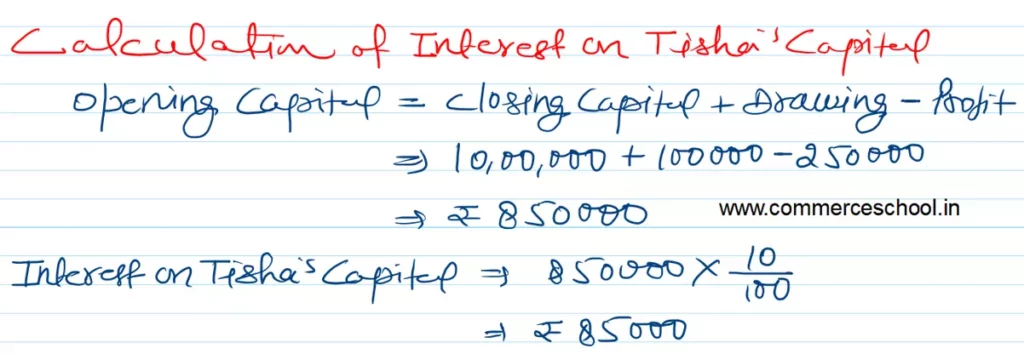 Calculation of Interest on Tisha's Capital
Opening Capital = Closing Capital + Drawing - Profit
⇒ 10,00,000 + 100000 - 250000
⇒ ₹ 850000
www.commerceschool.in
Interest on Tisha's Capital ⇒ 850000 × 10/100
⇒ ₹ 85000